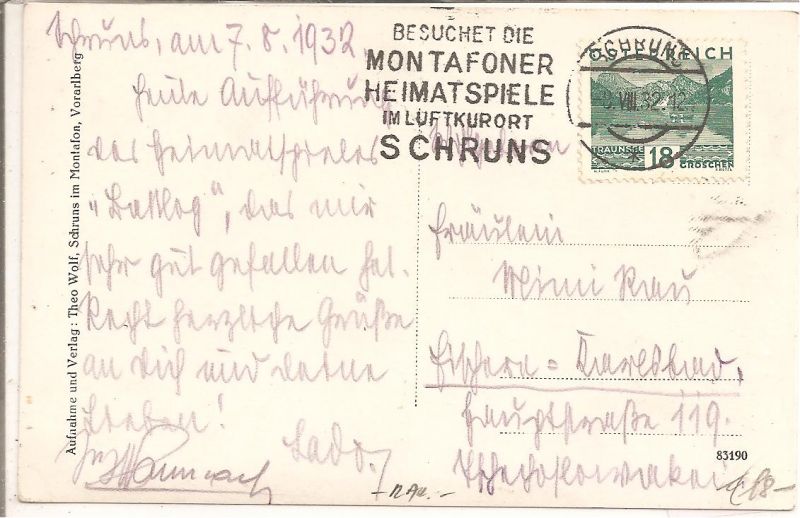 Schruns, am 7.8.1932
Heute Aufführung
des Heimatspieles
"Batlog", das mir
sehr gut gefallen hat.
Recht herzliche Grüße
an Dich und deine
Lieben!
Lado.
Aufnahme und Verlag: Theo Wolf, Schruns im Montafon, Vorarlberg
BESUCHET DIE
MONTAFONER
HEIMATSPIELE
IM LUFTKURORT
SCHRUNS
SCHRUNS
VIII 32 12
ÖSTERREICH
TRAUNSEE 18 GROSCHEN
Fräulein
Mimi Rau
Fischern = Karlsbad,
Hauptstraße 119.
Tschechoslowakei
83190